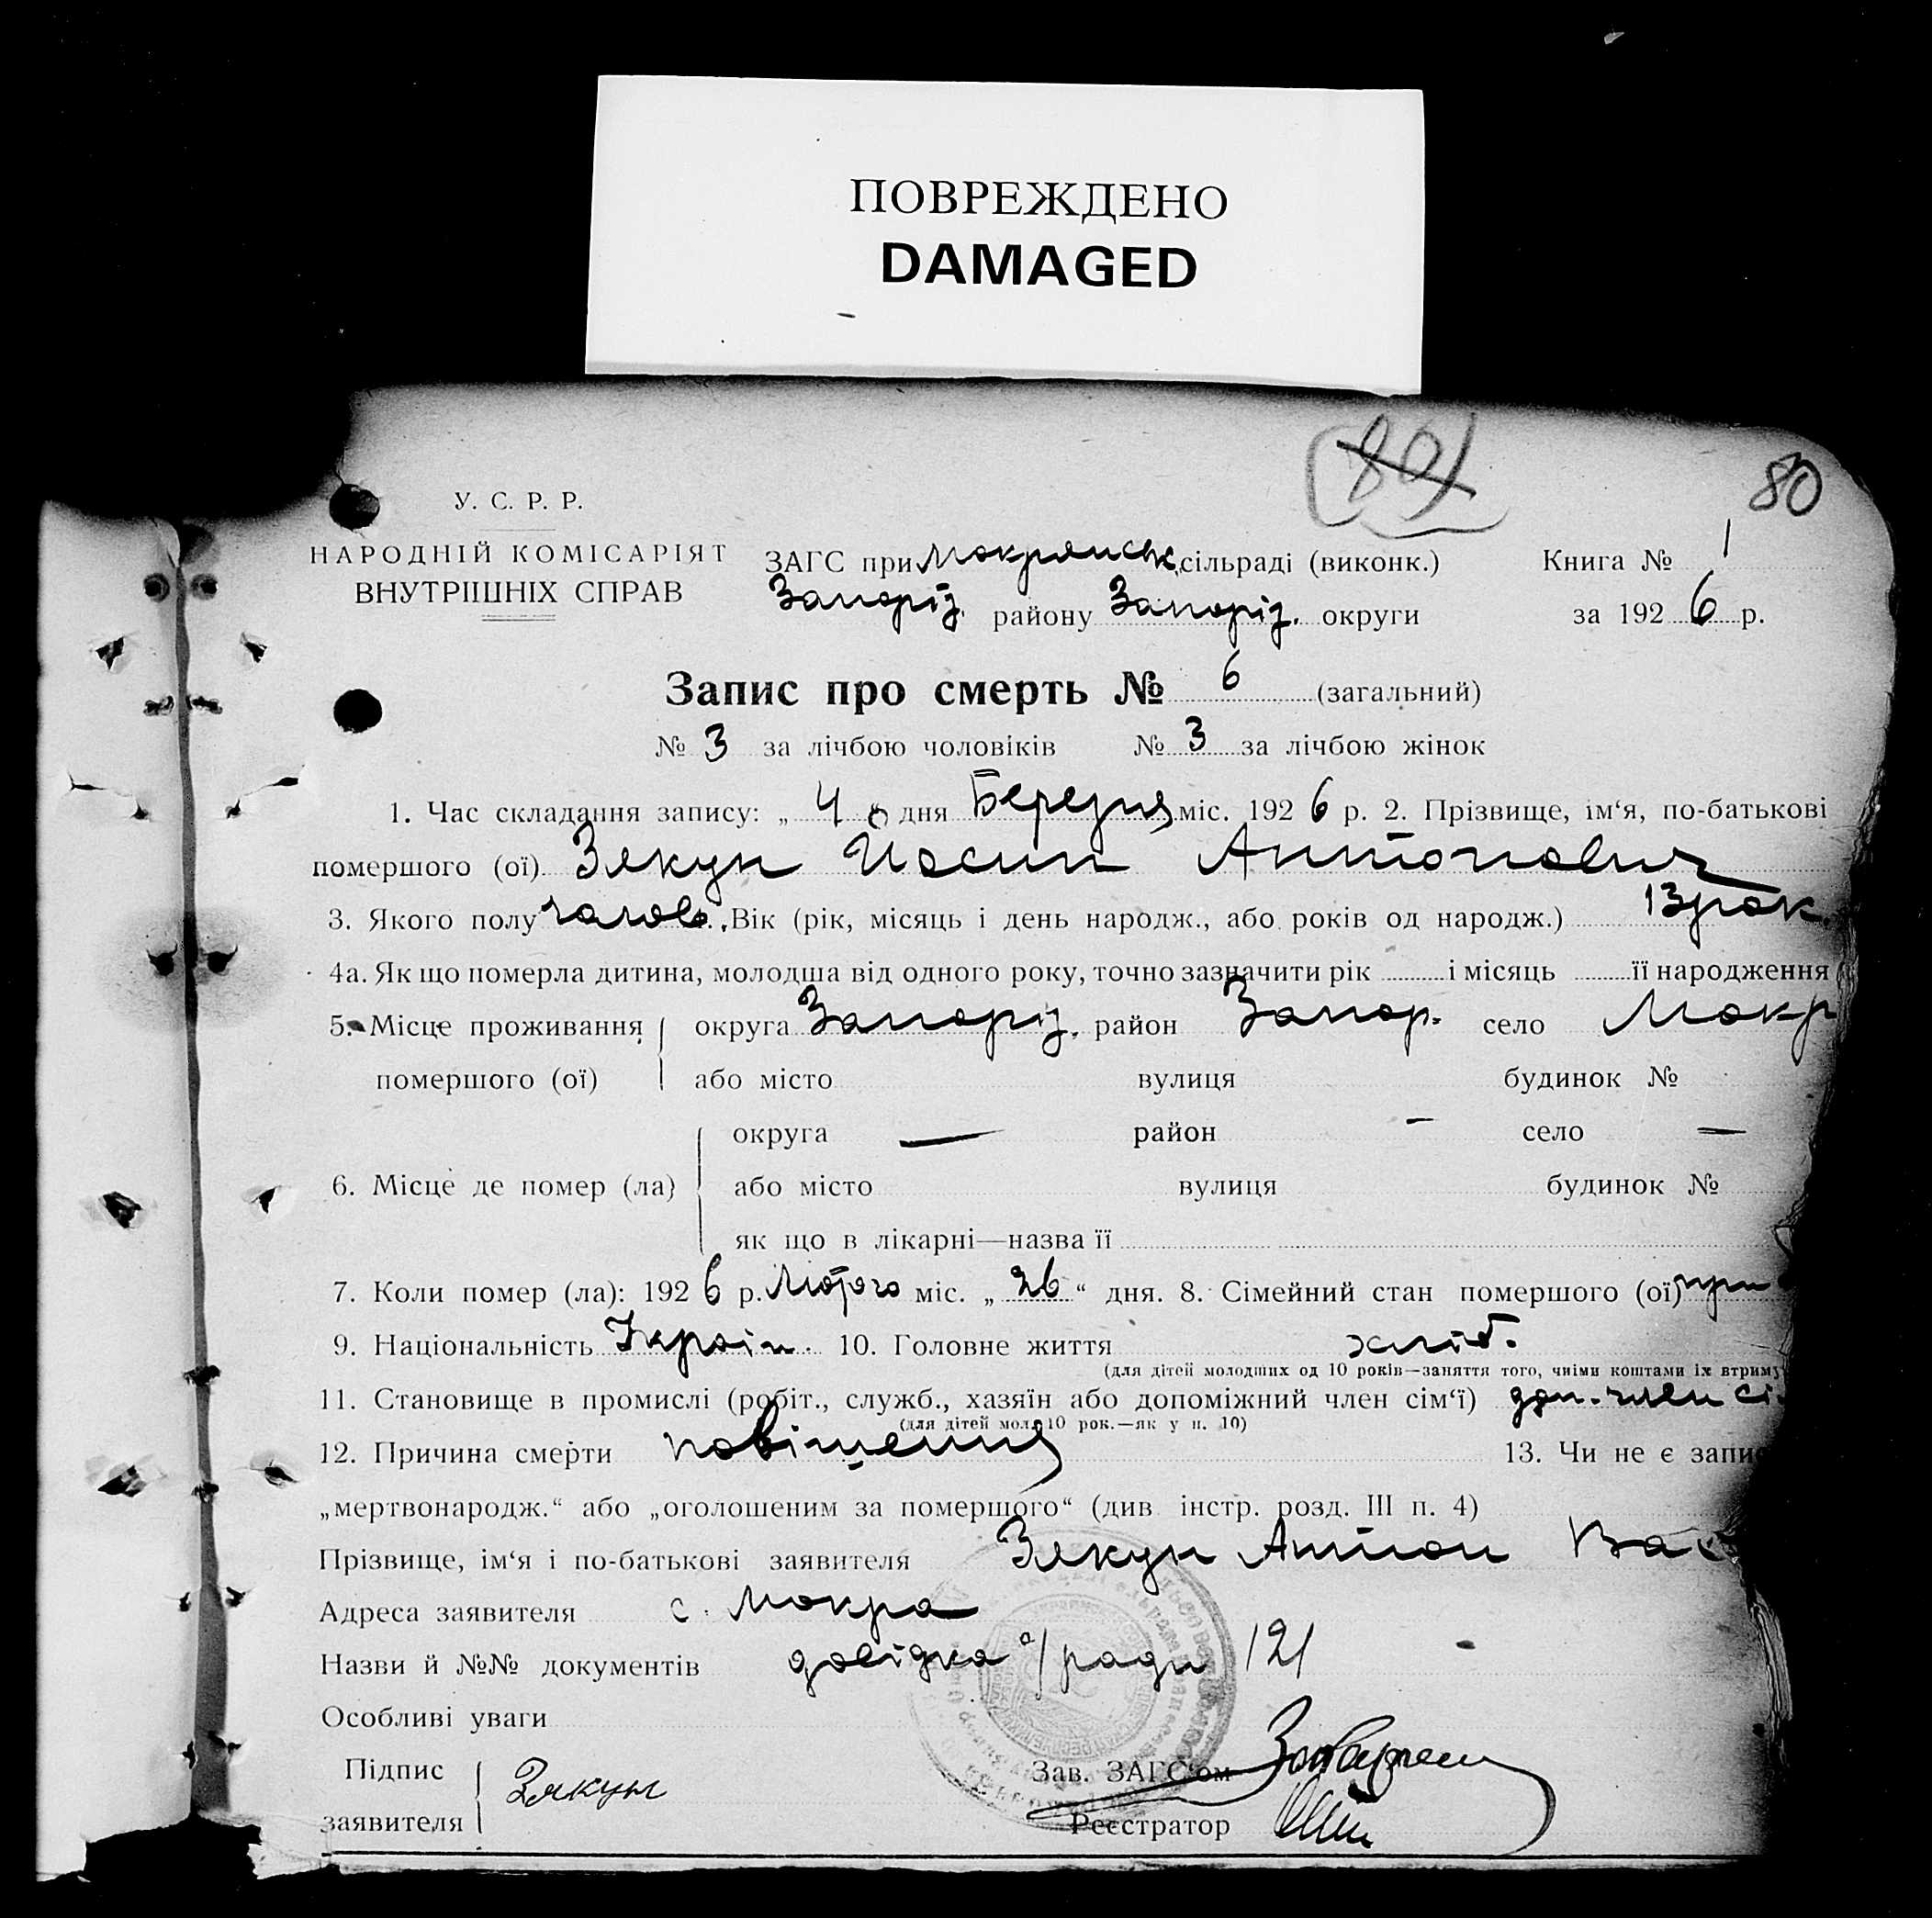 ПОВРЕЖДЕНО
DAMAGED
(80)
80
У. С. Р. Р.
НАРОДНІЙ КОМІСАРІЯТ
ВНУТРІШНІХ СПРАВ
ЗАГС при Мокрянськ. сільраді (виконк.)
Книга № 1
Запоріз. району Запоріз. округи
за 1926 р.
Запис про смерть № 6 (загальний)
№ 3 за лічбою чоловіків № 3 за лічбою жінок
1. Час складання запису: „ 4 “ дня Березня міс. 1926 р. 2. Прізвище, ім‘я, по-батькові
помершого (ої) Зякун Йосип Антонович
3. Якого полу чолов. Вік (рік, місяць і день народж., або років од народж.) 13 рок.
4а. Як що померла дитина, молодша від одного року, точно зазначити рік і місяць її народження
5. Місце проживання округа Запоріз. район Запор. село Мокр
помершого (ої) або місто вулиця будинок №
округа — район — село —
6. Місце де помер (ла) або місто вулиця будинок №
як що в лікарні—назва її
7. Коли помер (ла): 1926 р. Лютого міс. „ 26 “ дня. 8. Сімейний стан помершого (ої) при
9. Національність Україн. 10. Головне життя хліб.
(для дітей молодших од 10 років—заняття того, чиїми коштами їх втриму
11. Становище в промислі (робіт., служб., хазяїн або допоміжний член сім‘ї) доп. член сі
(для дітей мол. 10 рок.—як у п. 10)
12. Причина смерти повішення 13. Чи не є запис
„мертвонародж.“ або „оголошеним за помершого“ (див. інстр. розд. III п. 4)
Прізвище, ім‘я і по-батькові заявителя Зякун Антон Вас
Адреса заявителя с. Мокра
Назви й №№ документів довідка с/ради 121
Особливі уваги
Підпис
заявителя Зякун
Зав. ЗАГС‘ом
Реєстратор